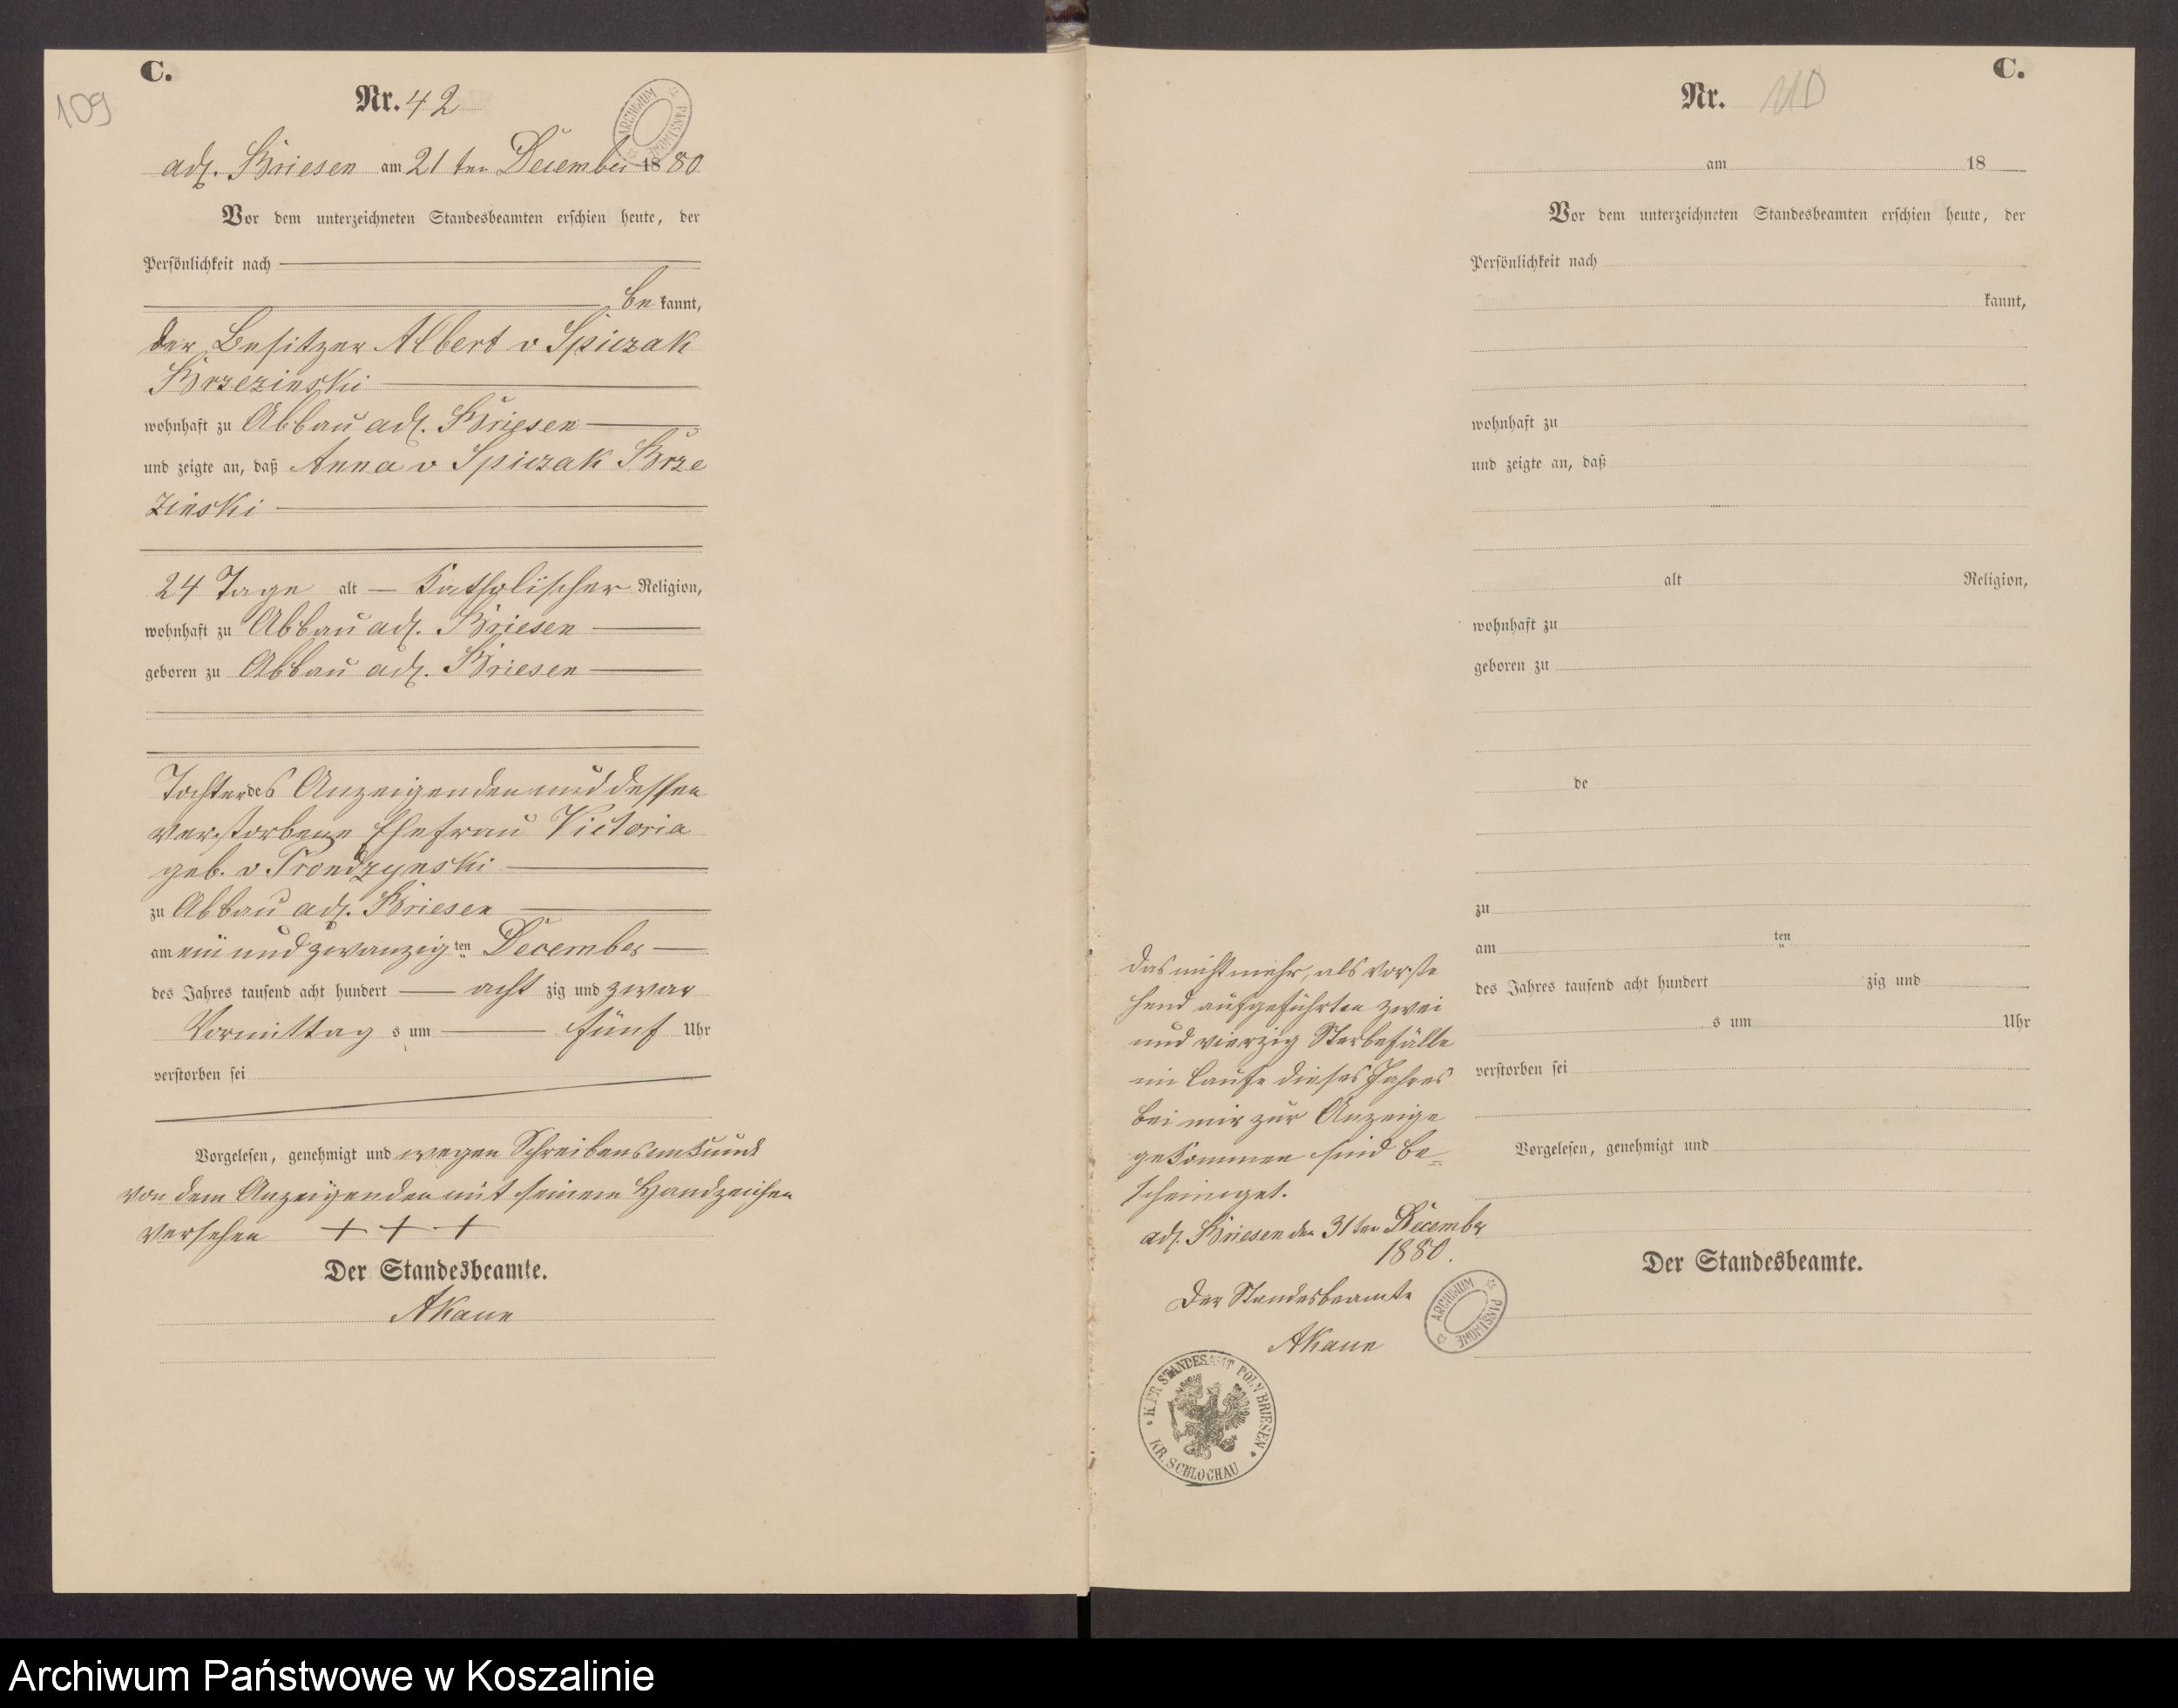 C.
109
Nr. 42
ARCHIWUM PAŃSTWOWE
adl. Briesen am 21ten December 1880
Vor dem unterzeichneten Standesbeamten erschien heute, der
Persönlichkeit nach
bekannt,
der Besitzer Albert v Spiczak
Brzezinski
wohnhaft zu Abbau adl. Briesen
und zeigte an, daß Anna v Spiczak Brze
zinski
24 Tage alt katholischer Religion,
wohnhaft zu Abbau adl. Briesen
geboren zu Abbau adl. Briesen
Tochter des Anzeigenden und dessen
verstorbene Ehefrau Victoria
geb. v Prondzynski
zu Abbau adl. Briesen
am ein und zwanzigten December
des Jahres tausend acht hundert achtzig und zwar
Vormittags um fünf Uhr
verstorben sei
Vorgelesen, genehmigt und wegen Schreibensunkunde
von dem Anzeigenden mit seinem Handzeichen
versehen + + +
Der Standesbeamte.
AKaun
C.
Nr. 110
am 18
Vor dem unterzeichneten Standesbeamten erschien heute, der
Persönlichkeit nach
kannt,
wohnhaft zu
und zeigte an, daß
alt Religion,
wohnhaft zu
geboren zu
de
zu
am ten
des Jahres tausend acht hundert zig und
s um Uhr
verstorben sei
Vorgelesen, genehmigt und
Der Standesbeamte.
Das nicht mehr, als vorste
hend aufgeführten zwei
und vierzig Sterbefälle
im Laufe dieses Jahres
bei mir zur Anzeige
gekommen sind be=
scheiniget.
adl. Briesen den 31ten December
1880.
Der Standesbeamte
AKaun
ARCHIWUM PAŃSTWOWE
K. PR. STANDESAMT POLN BRIESEN
KR. SCHLOCHAU
Archiwum Państwowe w Koszalinie